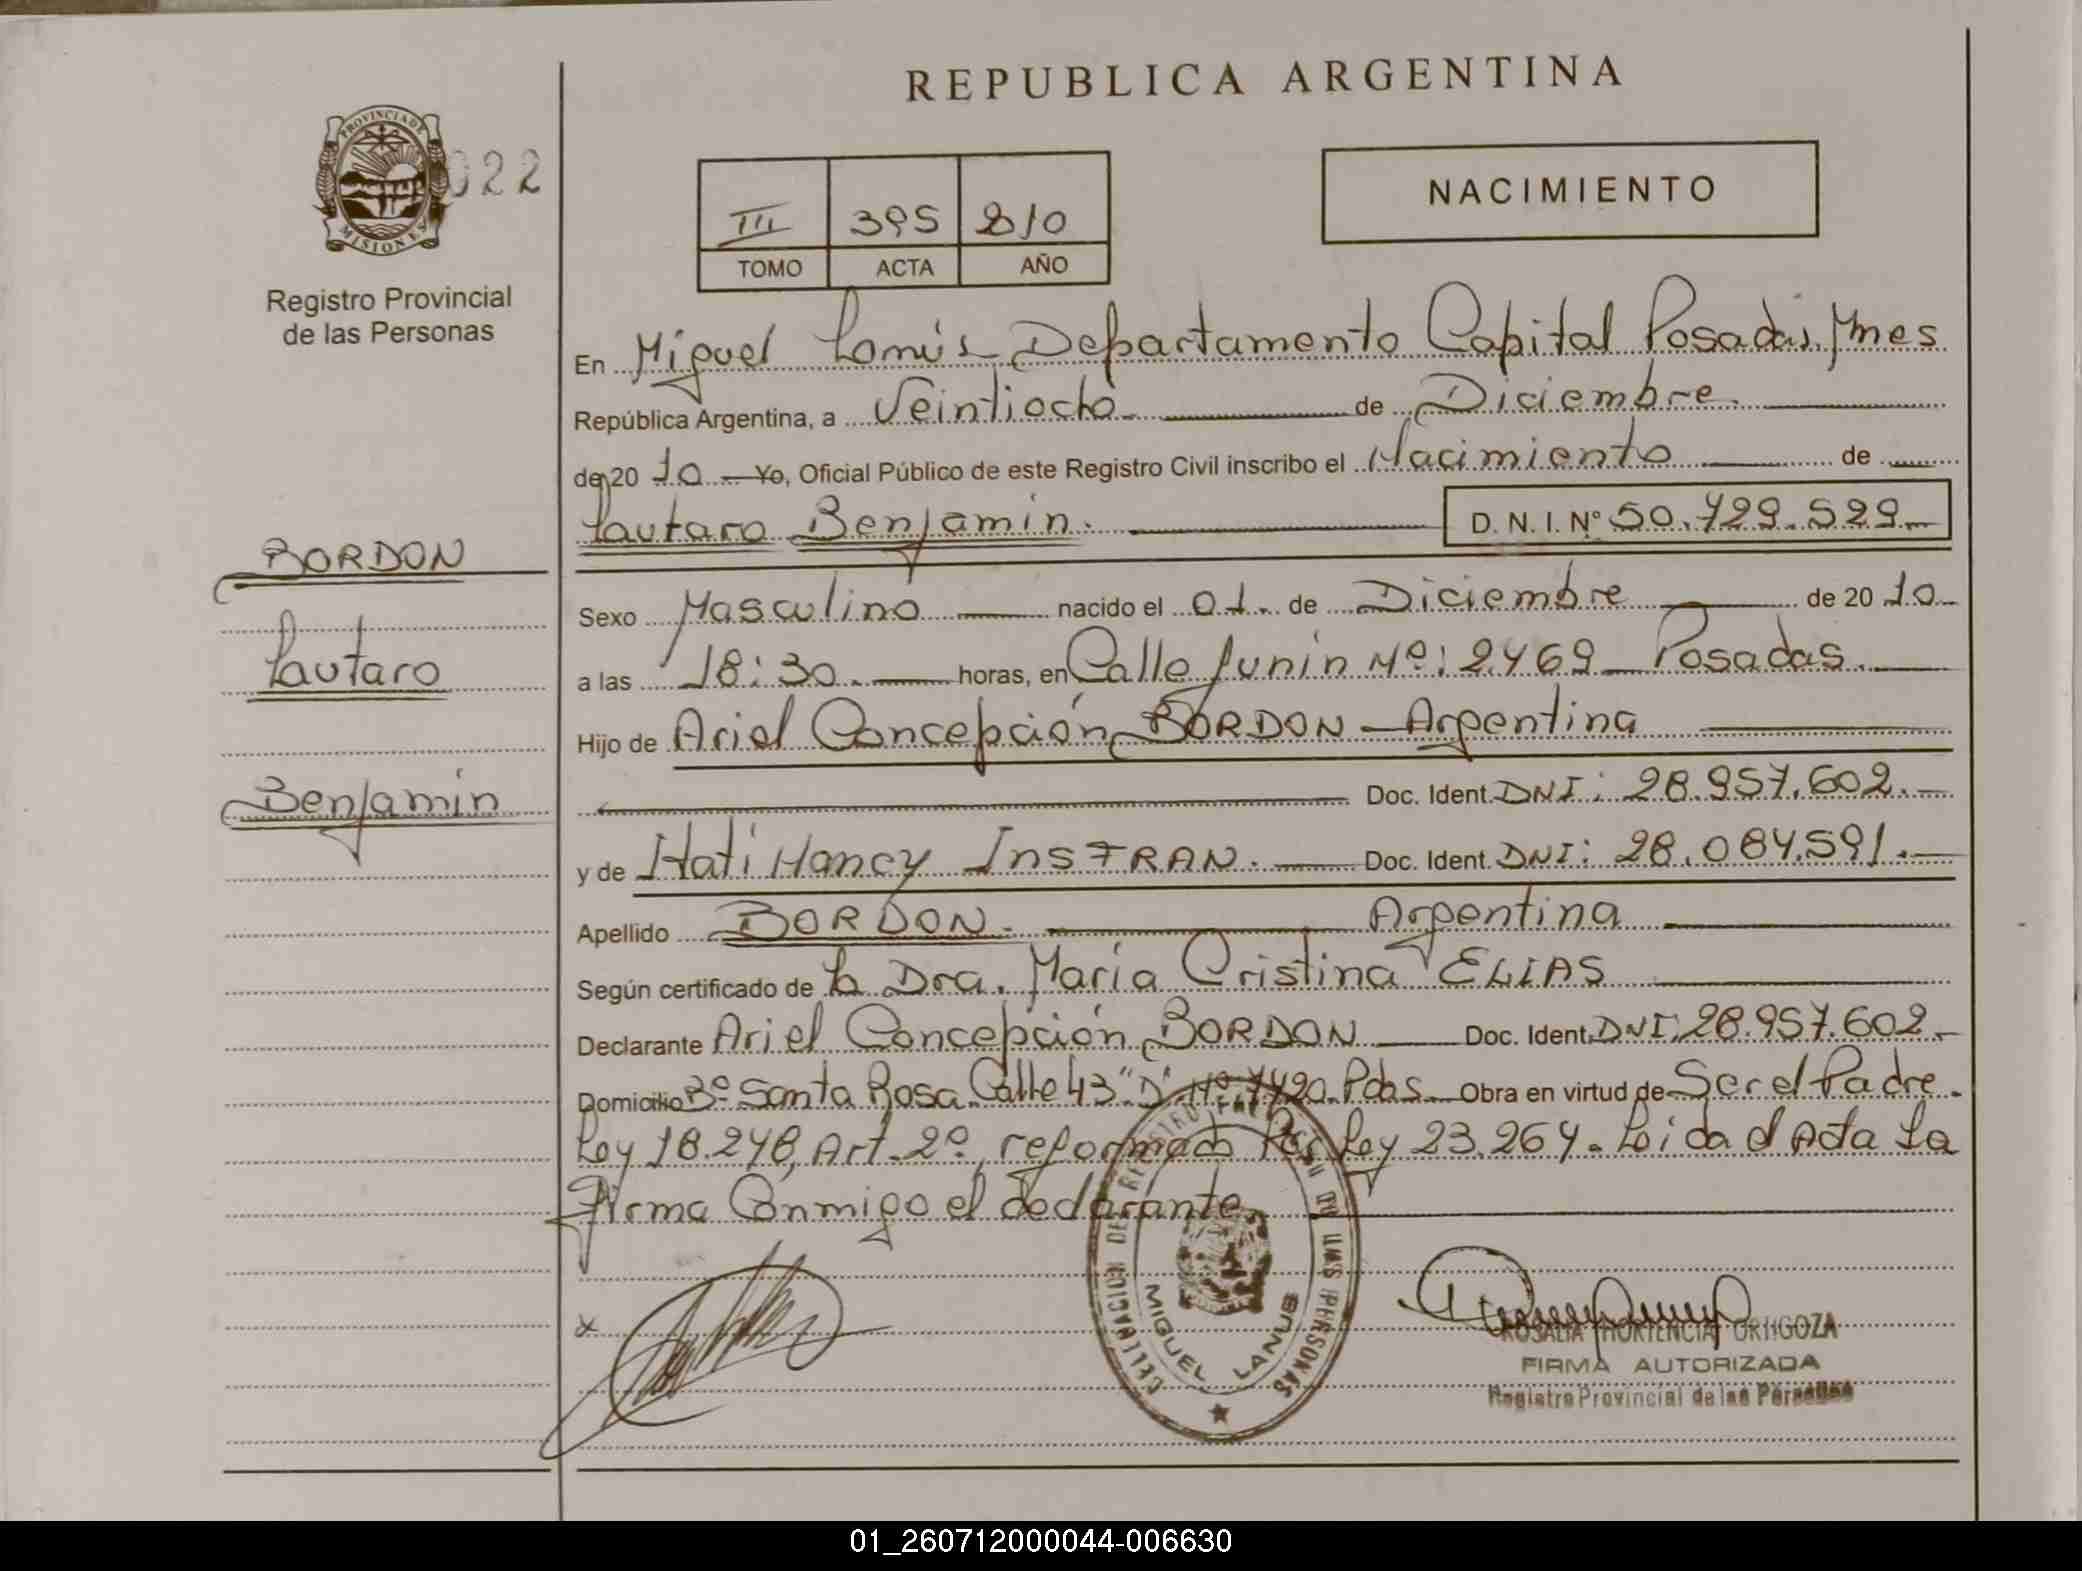 REPUBLICA ARGENTINA
PROVINCIA DE
MISIONES
022
Registro Provincial
de las Personas
III 395 2010
TOMO ACTA AÑO
NACIMIENTO
En Miguel Lanús Departamento Capital Posadas, Mnes
República Argentina, a Veintiocho de Diciembre
de 20 10 Yo, Oficial Público de este Registro Civil inscribo el Nacimiento de
Lautaro Benjamín. D. N. I. Nº 50.729.529
BORDON
Lautaro
Benjamín
Sexo Masculino nacido el 01 de Diciembre de 20 10
a las 18:30 horas, en Calle Junin Nº: 2469 Posadas.
Hijo de Ariel Concepción BORDON - Argentina
Doc. Ident. DNI: 28.957.602.
y de Itati Nancy INSFRAN. Doc. Ident. DNI: 28.084.591.
Apellido BORDON. Argentina
Según certificado de la Dra. María Cristina ELIAS
Declarante Ariel Concepción BORDON Doc. Ident. DNI: 28.957.602.
Domicilio Bº Santa Rosa Calle 43 "D" Nº 7420 Pdas. Obra en virtud de Ser el Padre.
Ley 18.248, Art. 2º, reformado Por Ley 23.264. Leida el Acta La
Firma Conmigo el declarante
x
MIGUEL LANUS
ROSALIA HORTENCIA ORTIGOZA
FIRMA AUTORIZADA
Registro Provincial de las Personas
01_260712000044-006630